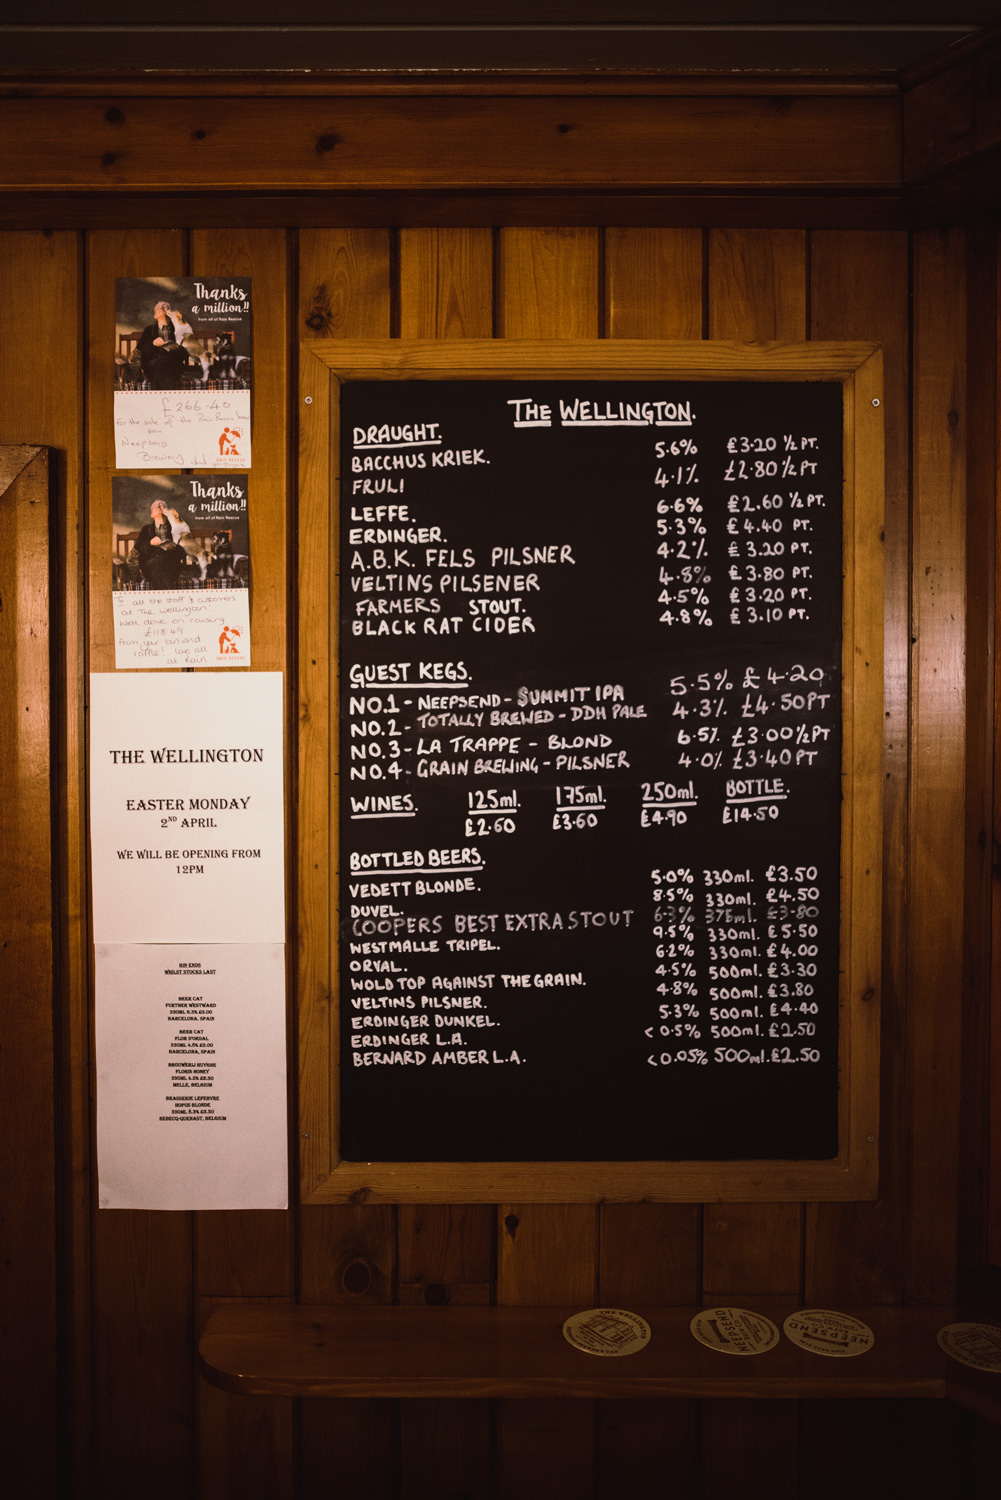 Thanks
a million!!
from all of Rain Rescue
£266-40
for the sale of the
Neepsend
Brewery
RAIN RESCUE
Thanks
a million!!
from all of Rain Rescue
To all the staff & customers
at The Wellington!
Well done on raising
£118.49
from your tin and
raffle! Love all
at Rain
RAIN RESCUE
THE WELLINGTON
EASTER MONDAY
2ND APRIL
WE WILL BE OPENING FROM
12PM
BIN ENDS
WHILST STOCKS LAST
BEER CAT
FURTHER WESTWARD
330ML 6.3% £3.00
BARCELONA, SPAIN
BEER CAT
FLOR D'ORDAL
BARCELONA, SPAIN
BROUWERIJ HUYGHE
FLORIS HONEY
MELLE, BELGIUM
BRASSERIE LEFEBVRE
HOPUS BLONDE
330ML 8.3% £3.50
REBECQ-QUENAST, BELGIUM
THE WELLINGTON.
DRAUGHT.
BACCHUS KRIEK. 5.6% £3.20 ½ PT.
FRULI 4.1% £2.80 ½ PT
LEFFE. 6.6% £2.60 ½ PT.
ERDINGER. 5.3% £4.40 PT.
A.B.K. FELS PILSNER 4.2% £3.20 PT.
VELTINS PILSENER 4.8% £3.80 PT.
FARMERS STOUT. 4.5% £3.20 PT.
BLACK RAT CIDER 4.8% £3.10 PT.
GUEST KEGS.
NO.1 - NEEPSEND - SUMMIT IPA 5.5% £4.20
NO.2 - TOTALLY BREWED - DDH PALE 4.3% £4.50PT
NO.3 - LA TRAPPE - BLOND 6.5% £3.00½PT
NO.4 - GRAIN BREWING - PILSNER 4.0% £3.40PT
WINES. 125ml. 175ml. 250ml. BOTTLE.
£2.60 £3.60 £4.90 £14.50
BOTTLED BEERS.
VEDETT BLONDE. 5.0% 330ml. £3.50
DUVEL. 8.5% 330ml. £4.50
COOPERS BEST EXTRA STOUT 6.3% 375ml. £3.80
WESTMALLE TRIPEL. 9.5% 330ml. £5.50
ORVAL. 6.2% 330ml. £4.00
WOLD TOP AGAINST THE GRAIN. 4.5% 500ml. £3.30
VELTINS PILSNER. 4.8% 500ml. £3.80
ERDINGER DUNKEL. 5.3% 500ml. £4.40
ERDINGER L.A. <0.5% 500ml. £2.50
BERNARD AMBER L.A. <0.05% 500ml. £2.50
THE WELLINGTON
NEEPSEND
NEEPSEND